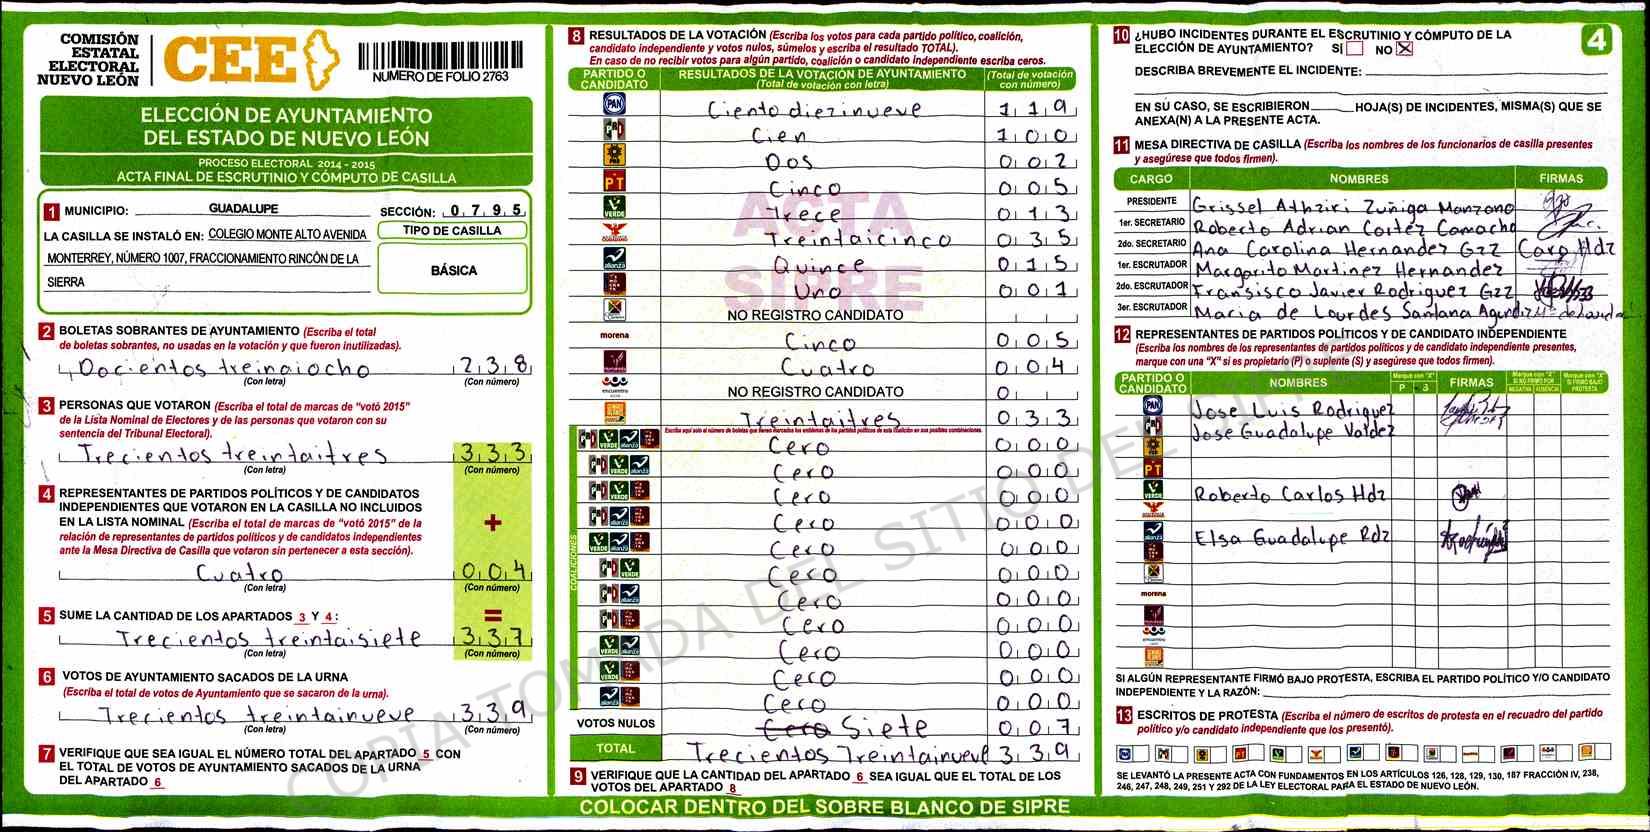 COMISIÓN
ESTATAL
ELECTORAL
NUEVO LEÓN
CEE
NUMERO DE FOLIO 2763
ELECCIÓN DE AYUNTAMIENTO
DEL ESTADO DE NUEVO LEÓN
PROCESO ELECTORAL 2014 - 2015
ACTA FINAL DE ESCRUTINIO Y CÓMPUTO DE CASILLA
1 MUNICIPIO: GUADALUPE SECCIÓN: 0 7 9 5
LA CASILLA SE INSTALÓ EN: COLEGIO MONTE ALTO AVENIDA
MONTERREY, NÚMERO 1007, FRACCIONAMIENTO RINCÓN DE LA
SIERRA
TIPO DE CASILLA
BÁSICA
2 BOLETAS SOBRANTES DE AYUNTAMIENTO (Escriba el total
de boletas sobrantes, no usadas en la votación y que fueron inutilizadas).
Docientos treinaiocho 2 3 8
(Con letra) (Con número)
3 PERSONAS QUE VOTARON (Escriba el total de marcas de "votó 2015"
de la Lista Nominal de Electores y de las personas que votaron con su
sentencia del Tribunal Electoral).
Trecientos treintaitres 3 3 3
(Con letra) (Con número)
4 REPRESENTANTES DE PARTIDOS POLÍTICOS Y DE CANDIDATOS
INDEPENDIENTES QUE VOTARON EN LA CASILLA NO INCLUIDOS
EN LA LISTA NOMINAL (Escriba el total de marcas de "votó 2015" de la
relación de representantes de partidos políticos y de candidatos independientes
ante la Mesa Directiva de Casilla que votaron sin pertenecer a esta sección).
+
Cuatro 0 0 4
(Con letra) (Con número)
5 SUME LA CANTIDAD DE LOS APARTADOS 3 Y 4: =
Trecientos treintaisiete 3 3 7
(Con letra) (Con número)
6 VOTOS DE AYUNTAMIENTO SACADOS DE LA URNA
(Escriba el total de votos de Ayuntamiento que se sacaron de la urna).
Trecientos treintainueve 3 3 9
(Con letra) (Con número)
7 VERIFIQUE QUE SEA IGUAL EL NÚMERO TOTAL DEL APARTADO 5 CON
EL TOTAL DE VOTOS DE AYUNTAMIENTO SACADOS DE LA URNA
DEL APARTADO 6
8 RESULTADOS DE LA VOTACIÓN (Escriba los votos para cada partido político, coalición,
candidato independiente y votos nulos, súmelos y escriba el resultado TOTAL).
En caso de no recibir votos para algún partido, coalición o candidato independiente escriba ceros.
PARTIDO O CANDIDATO RESULTADOS DE LA VOTACIÓN DE AYUNTAMIENTO (Total de votación con letra) (Total de votación con número)
PAN Ciento diezinueve 1 1 9
PRI Cien 1 0 0
PRD Dos 0 0 2
PT Cinco 0 0 5
VERDE Trece 0 1 3
Treintaicinco 0 3 5
alianza Quince 0 1 5
Uno 0 0 1
NO REGISTRO CANDIDATO
morena Cinco 0 0 5
Cuatro 0 0 4
encuentro NO REGISTRO CANDIDATO 0
Treintaitres 0 3 3
Escriba aquí solo el número de boletas que tienen marcados los emblemas de los partidos políticos de esta Coalición en sus posibles combinaciones.
COALICIONES
PRI VERDE alianza Cero 0 0 0
PRI VERDE alianza Cero 0 0 0
PRI VERDE Cero 0 0 0
PRI alianza Cero 0 0 0
VERDE alianza Cero 0 0 0
PRI VERDE Cero 0 0 0
PRI alianza Cero 0 0 0
PRI Cero 0 0 0
VERDE alianza Cero 0 0 0
VERDE Cero 0 0 0
alianza Cero 0 0 0
VOTOS NULOS Cero Siete 0 0 7
TOTAL Trecientos Treintainueve 3 3 9
9 VERIFIQUE QUE LA CANTIDAD DEL APARTADO 6 SEA IGUAL QUE EL TOTAL DE LOS
VOTOS DEL APARTADO 8
ACTA
SIPRE
COPIA TOMADA DEL SITIO DEL SIPRE
COLOCAR DENTRO DEL SOBRE BLANCO DE SIPRE
10 ¿HUBO INCIDENTES DURANTE EL ESCRUTINIO Y CÓMPUTO DE LA
ELECCIÓN DE AYUNTAMIENTO? SÍ NO X
4
DESCRIBA BREVEMENTE EL INCIDENTE:
EN SU CASO, SE ESCRIBIERON HOJA(S) DE INCIDENTES, MISMA(S) QUE SE
ANEXA(N) A LA PRESENTE ACTA.
11 MESA DIRECTIVA DE CASILLA (Escriba los nombres de los funcionarios de casilla presentes
y asegúrese que todos firmen).
CARGO NOMBRES FIRMAS
PRESIDENTE Grissel Athziri Zuñiga Manzano
1er. SECRETARIO Roberto Adrian Cortez Camacho
2do. SECRETARIO Ana Carolina Hernandez Gzz Caro Hdz
1er. ESCRUTADOR Margarito Martinez Hernandez
2do. ESCRUTADOR Fransisco Javier Rodriguez Gzz
3er. ESCRUTADOR Maria de Lourdes Santana
12 REPRESENTANTES DE PARTIDOS POLÍTICOS Y DE CANDIDATO INDEPENDIENTE
(Escriba los nombres de los representantes de partidos políticos y de candidato independiente presentes,
marque con una "X" si es propietario (P) o suplente (S) y asegúrese que todos firmen).
PARTIDO O CANDIDATO NOMBRES Marque con "X" P S FIRMAS
PAN Jose Luis Rodriguez
Jose Guadalupe Valdez
PRD
PT
VERDE Roberto Carlos Hdz
alianza Elsa Guadalupe Rdz
morena
encuentro
SI ALGÚN REPRESENTANTE FIRMÓ BAJO PROTESTA, ESCRIBA EL PARTIDO POLÍTICO Y/O CANDIDATO
INDEPENDIENTE Y LA RAZÓN:
13 ESCRITOS DE PROTESTA (Escriba el número de escritos de protesta en el recuadro del partido
político y/o candidato independiente que los presentó).
SE LEVANTÓ LA PRESENTE ACTA CON FUNDAMENTOS EN LOS ARTÍCULOS 126, 128, 129, 130, 187 FRACCIÓN IV, 238,
246, 247, 248, 249, 251 Y 292 DE LA LEY ELECTORAL PARA EL ESTADO DE NUEVO LEÓN.